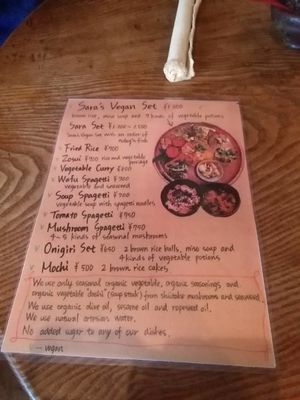 Sara's Vegan Set
brown rice, miso soup and 9 kinds of vegetable potions
Sara Set
Sara's Vegan Set with an order of
today's fish
v Fried Rice ¥900
v Zosui ¥900 rice and vegetable
porridge
v Vegetable Curry
v Wafu Spaghetti
vegetable and seaweed
v Soup Spaghetti
vegetable soup with spaghetti noodles
Tomato Spaghetti ¥950
v Mushroom Spaghetti ¥950
4~5 kinds of seasonal mushrooms
v Onigiri Set ¥650 2 brown rice balls, miso soup and
4 kinds of vegetable potions
v Mochi ¥500 2 brown rice cakes
We use only seasonal organic vegetable, organic seasonings and
organic vegetable dashi (soup stock) from shiitake mushrooms and seaweed.
We use organic olive oil, sesame oil and rapeseed oil.
We use natural water.
No added sugar to any of our dishes.
v vegan